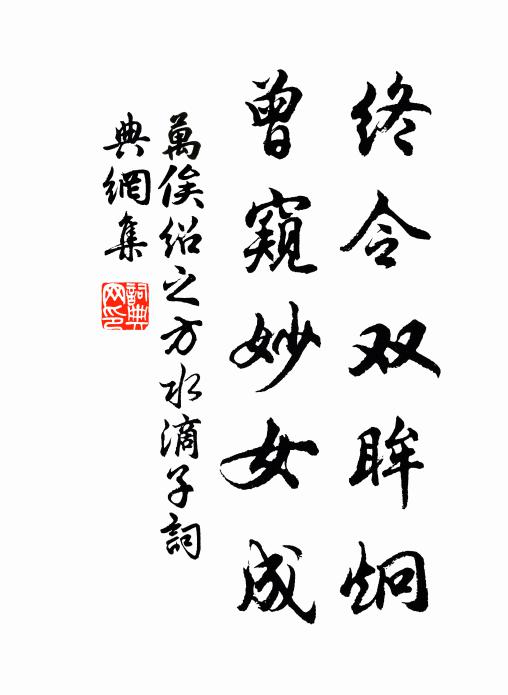 终令双眸炯
曾窥妙女成
萬俟绍之方水滴子詞
典網集
詞典网印